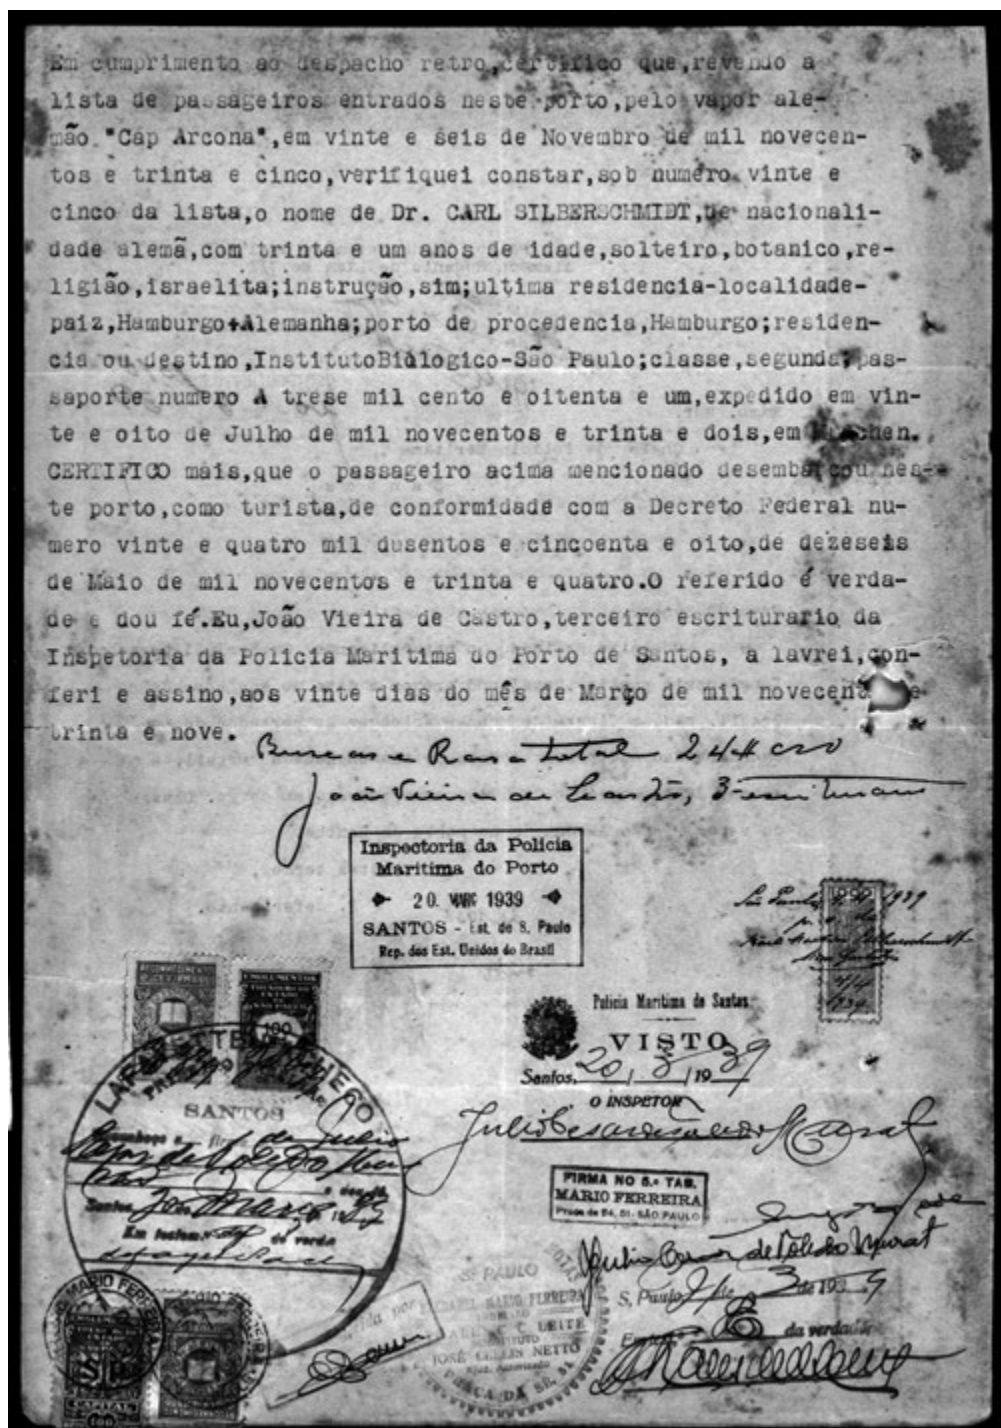 Em cumprimento ao despacho retro,certifico que,revendo a
lista de passageiros entrados neste porto,pelo vapor ale-
mão "Cap Arcona",em vinte e seis de Novembro de mil novecen-
tos e trinta e cinco,verifiquei constar,sob numero vinte e
cinco da lista,o nome de Dr. CARL SILBERSCHMIDT,de nacionali-
dade alemã,com trinta e um anos de idade,solteiro,botanico,re-
ligião,israelita;instrução,sim;ultima residencia-localidade-
paiz,Hamburgo+Alemanha;porto de procedencia,Hamburgo;residen-
cia ou destino,InstitutoBiologico-São Paulo;classe,segunda;pas-
saporte numero A trese mil cento e oitenta e um,expedido em vin-
te e oito de Julho de mil novecentos e trinta e dois,em
CERTIFICO mais,que o passageiro acima mencionado desembarcou nes-
te porto,como turista,de conformidade com a Decreto Federal nu-
mero vinte e quatro mil dusentos e cincoenta e oito,de dezeseis
de Maio de mil novecentos e trinta e quatro.O referido é verda-
de e dou fé.Eu,João Vieira de Castro,terceiro escriturario da
Inspetoria da Policia Maritima do Porto de Santos, a lavrei,con-
feri e assino,aos vinte dias do mês de Março de mil novecent e
trinta e nove.
total
João Vieira de Castro, 3-
Inspectoria da Policia
Maritima do Porto
20. MARÇ 1939
SANTOS - Est. de S. Paulo
Rep. dos Est. Unidos do Brasil
São Paulo 1939
Policia Maritima de Santos
VISTO
Santos, 20/3/1939
O INSPETOR
SANTOS
de Julio
Cesar de Toledo
Santos, Março
Em testem. da verd.
FIRMA NO 5.º TAB.
MARIO FERREIRA
Praça da Sé, 51-SÃO PAULO
Julio Cesar de Toledo Murat
S. Paulo, de 3 de 193
da verdade
S. PAULO
MARIO FERREIRA
LEITE
JOSÉ NETTO
PRAÇA DA SÉ, 51
MARIO FERREIRA